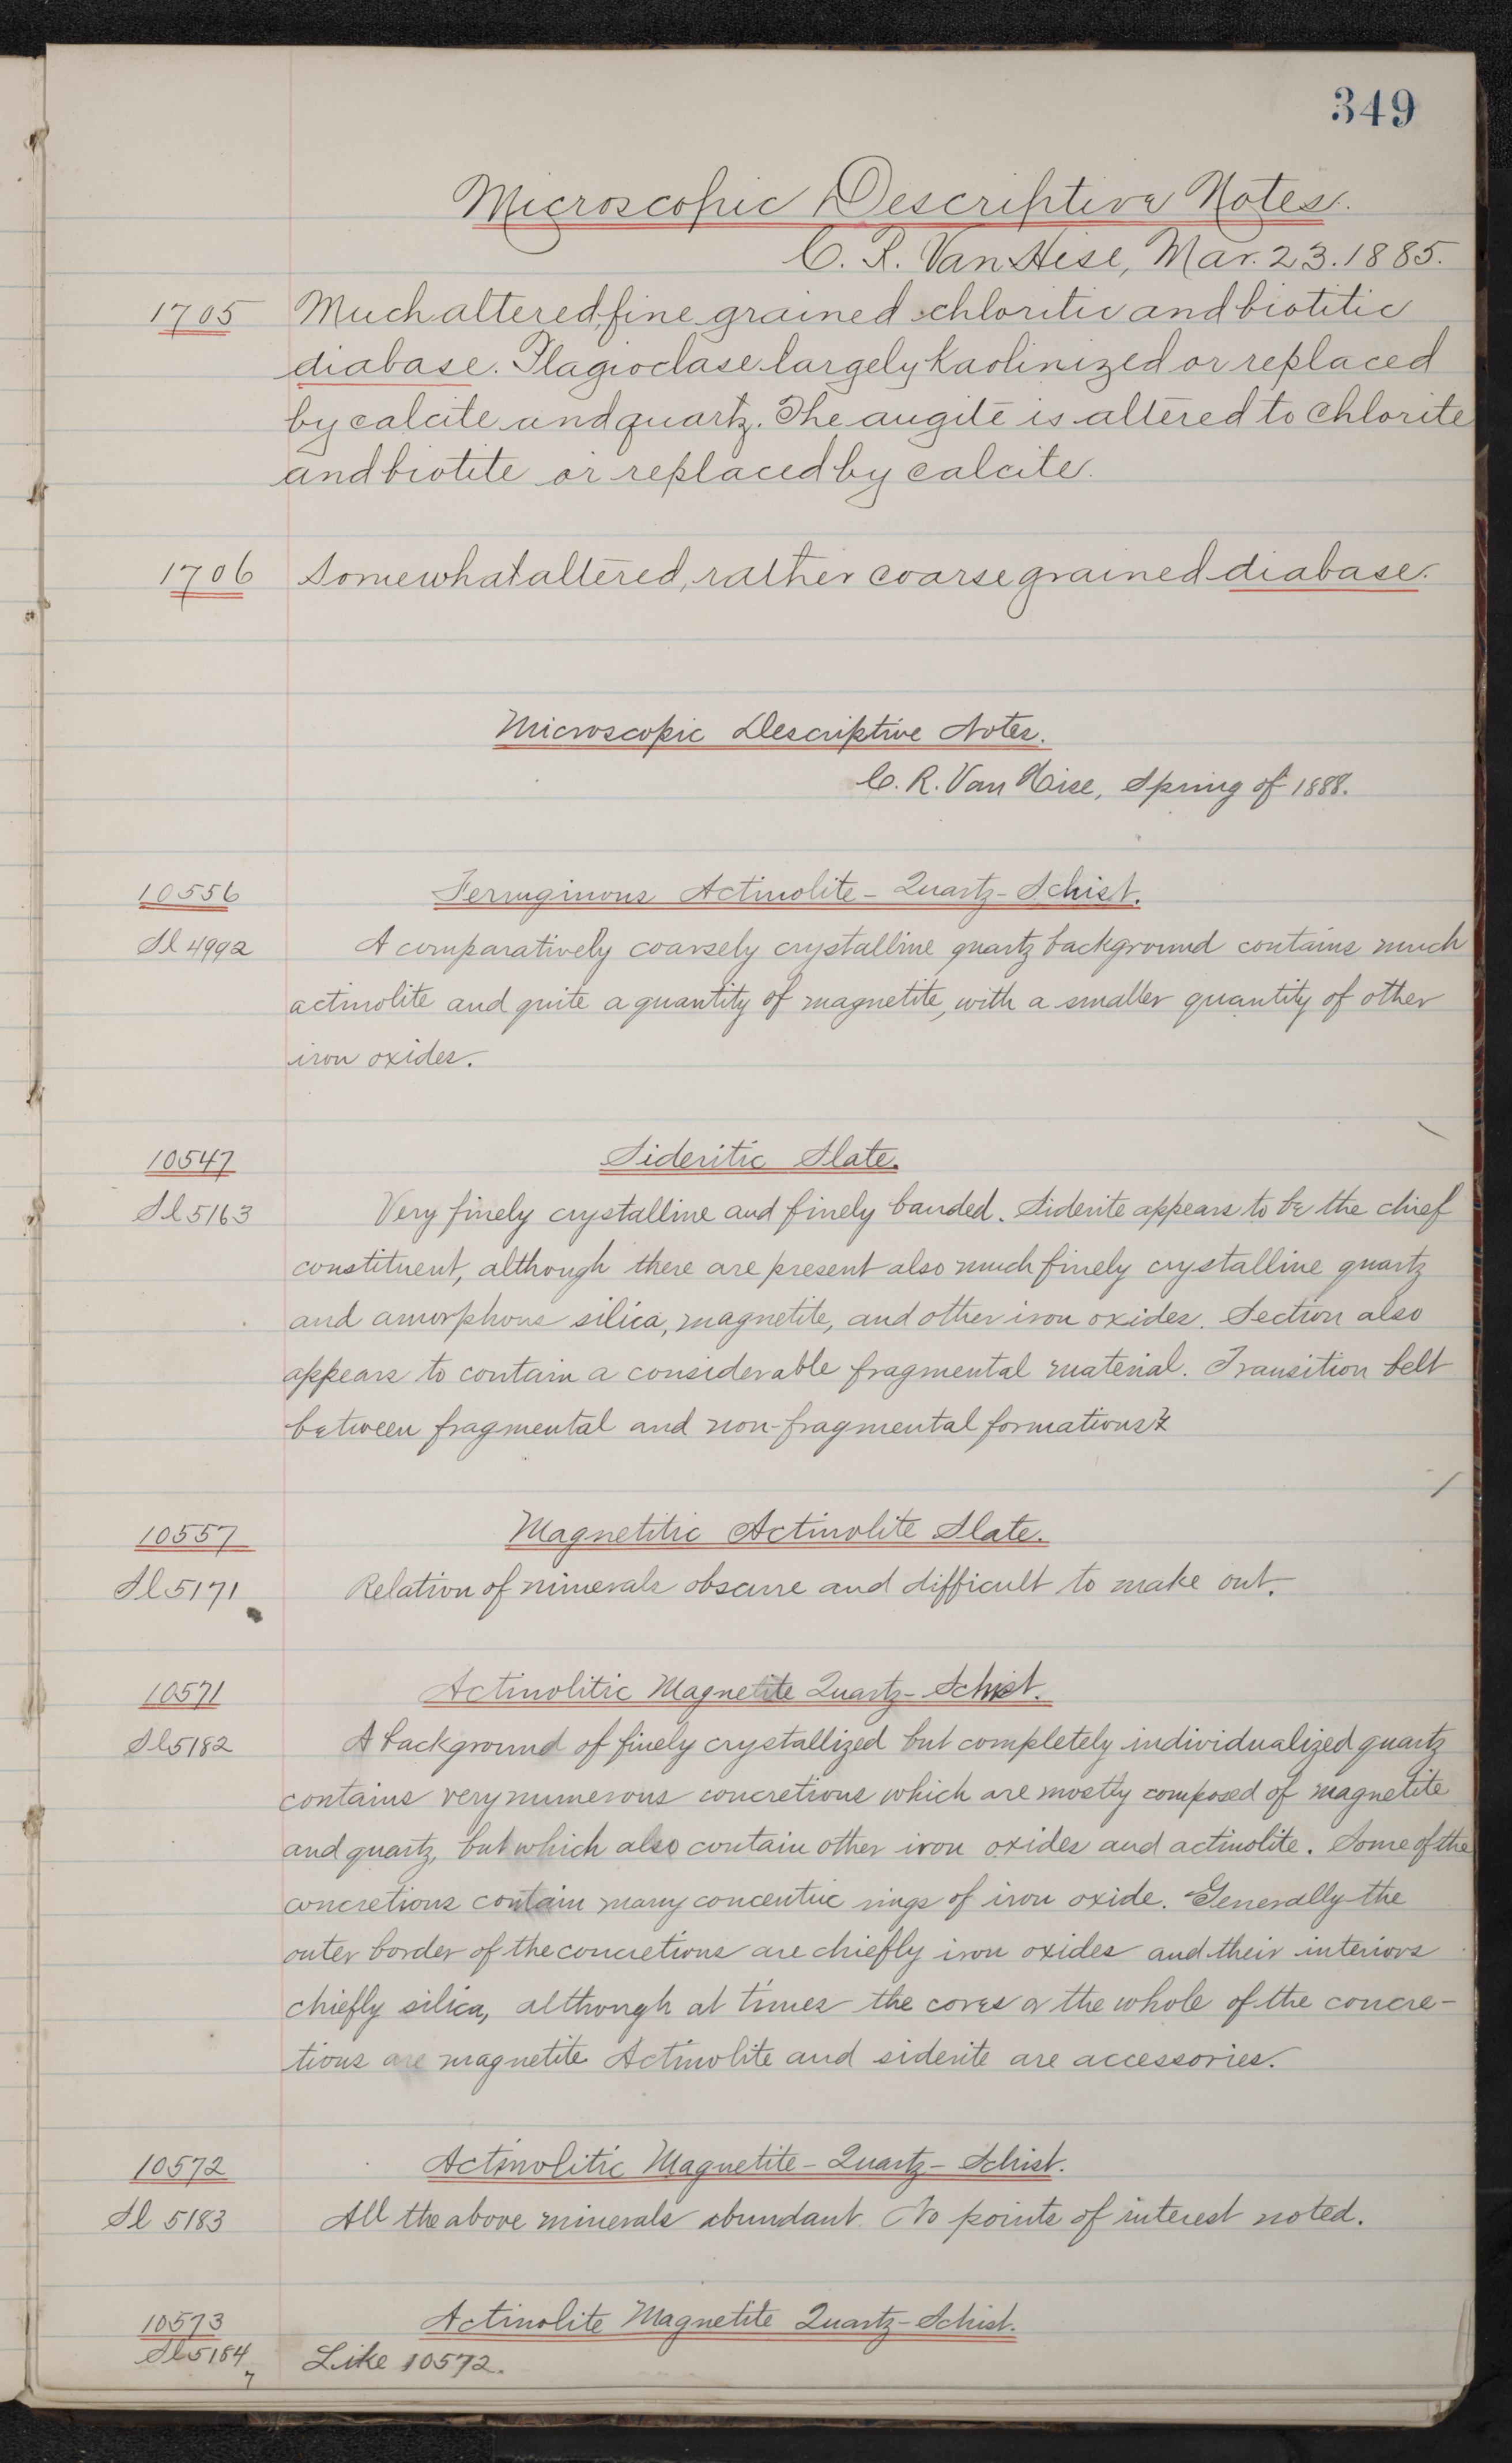 349
Microscopic Descriptive Notes.
C. R. Van Hise, Mar. 23. 1885.
1705 Much altered, fine grained chloritic and biotitic
diabase. Plagioclase largely kaolinized or replaced
by calcite and quartz. The augite is altered to chlorite
and biotite or replaced by calcite.
1706 Somewhat altered, rather coarse grained diabase.
Microscopic Descriptive Notes.
C. R. Van Hise, Spring of 1888.
10556 Ferruginous Actinolite-Quartz-Schist.
Sl 4992 A comparatively coarsely crystalline quartz background contains much
actinolite and quite a quantity of magnetite, with a smaller quantity of other
iron oxides.
10547 Sideritic Slate.
Sl 5163 Very finely crystalline and finely banded. Siderite appears to be the chief
constituent, although there are present also much finely crystalline quartz
and amorphous silica, magnetite, and other iron oxides. Section also
appears to contain a considerable fragmental material. Transition belt
between fragmental and non-fragmental formations?
10557 Magnetitic Actinolite Slate.
Sl 5171 Relation of minerals obscure and difficult to make out.
10571 Actinolitic Magnetite Quartz-Schist.
Sl 5182 A background of finely crystallized but completely individualized quartz
contains very numerous concretions which are mostly composed of magnetite
and quartz, but which also contain other iron oxides and actinolite. Some of the
concretions contain many concentric rings of iron oxide. Generally the
outer border of the concretions are chiefly iron oxides and their interiors
chiefly silica, although at times the cores or the whole of the concre-
tions are magnetite. Actinolite and siderite are accessories.
10572 Actinolitic Magnetite-Quartz-Schist.
Sl 5183 All the above minerals abundant. No points of interest noted.
10573 Actinolite Magnetite Quartz-Schist.
Sl 5184 Like 10572.